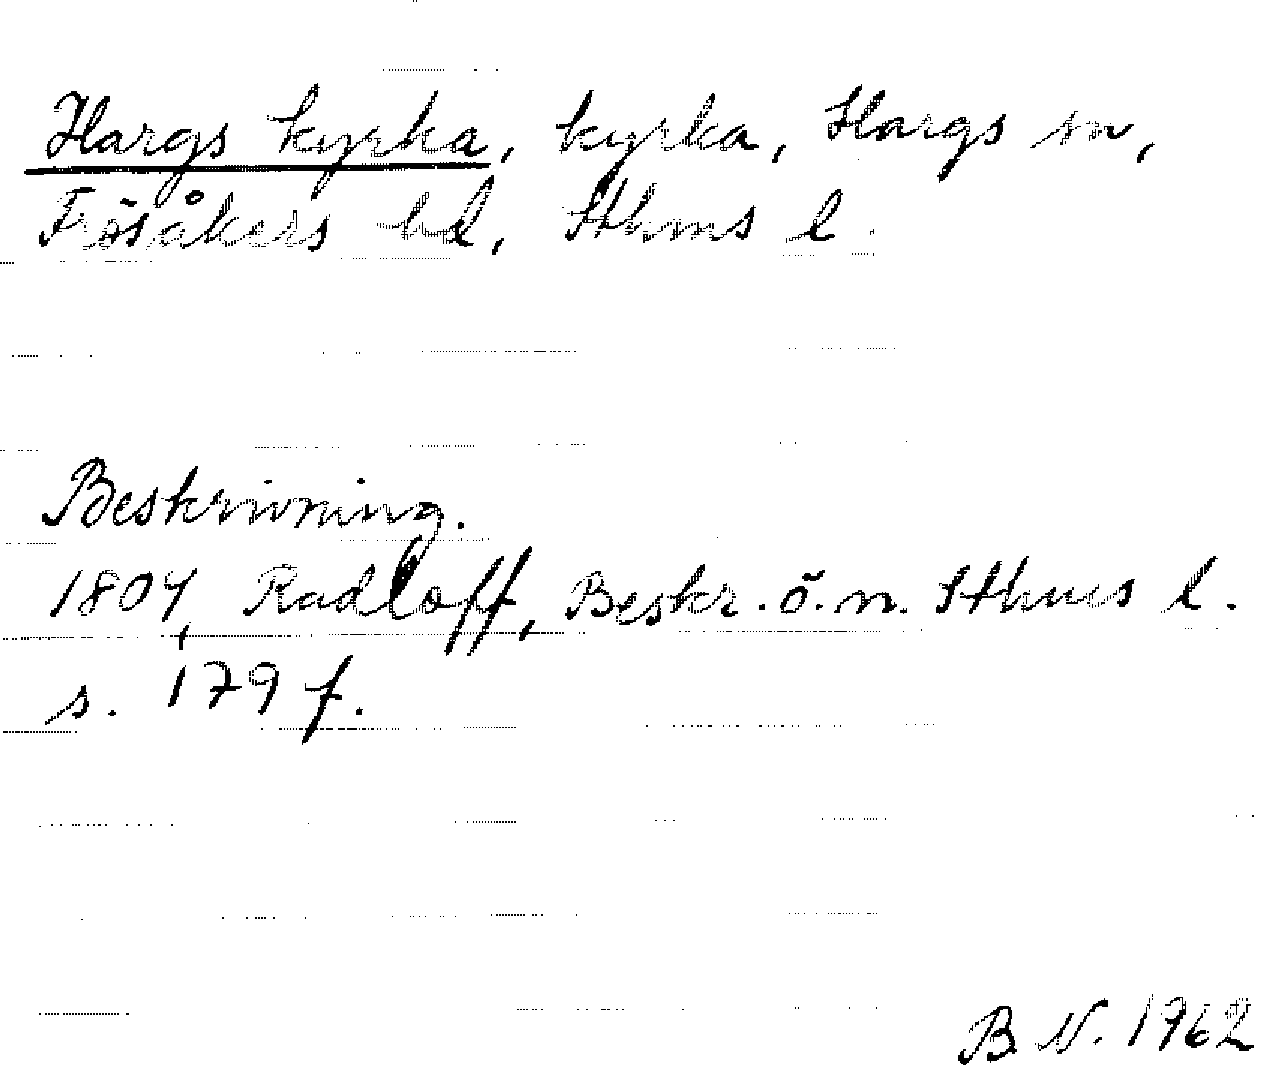 Hargs kyrka, kyrka, Hargs sn,
Frösåkers hd, Sthms l.
Beskrivning.
1804, Radloff, Beskr. ö. n. Sthms l.
s. 179 f.
B N. 1962